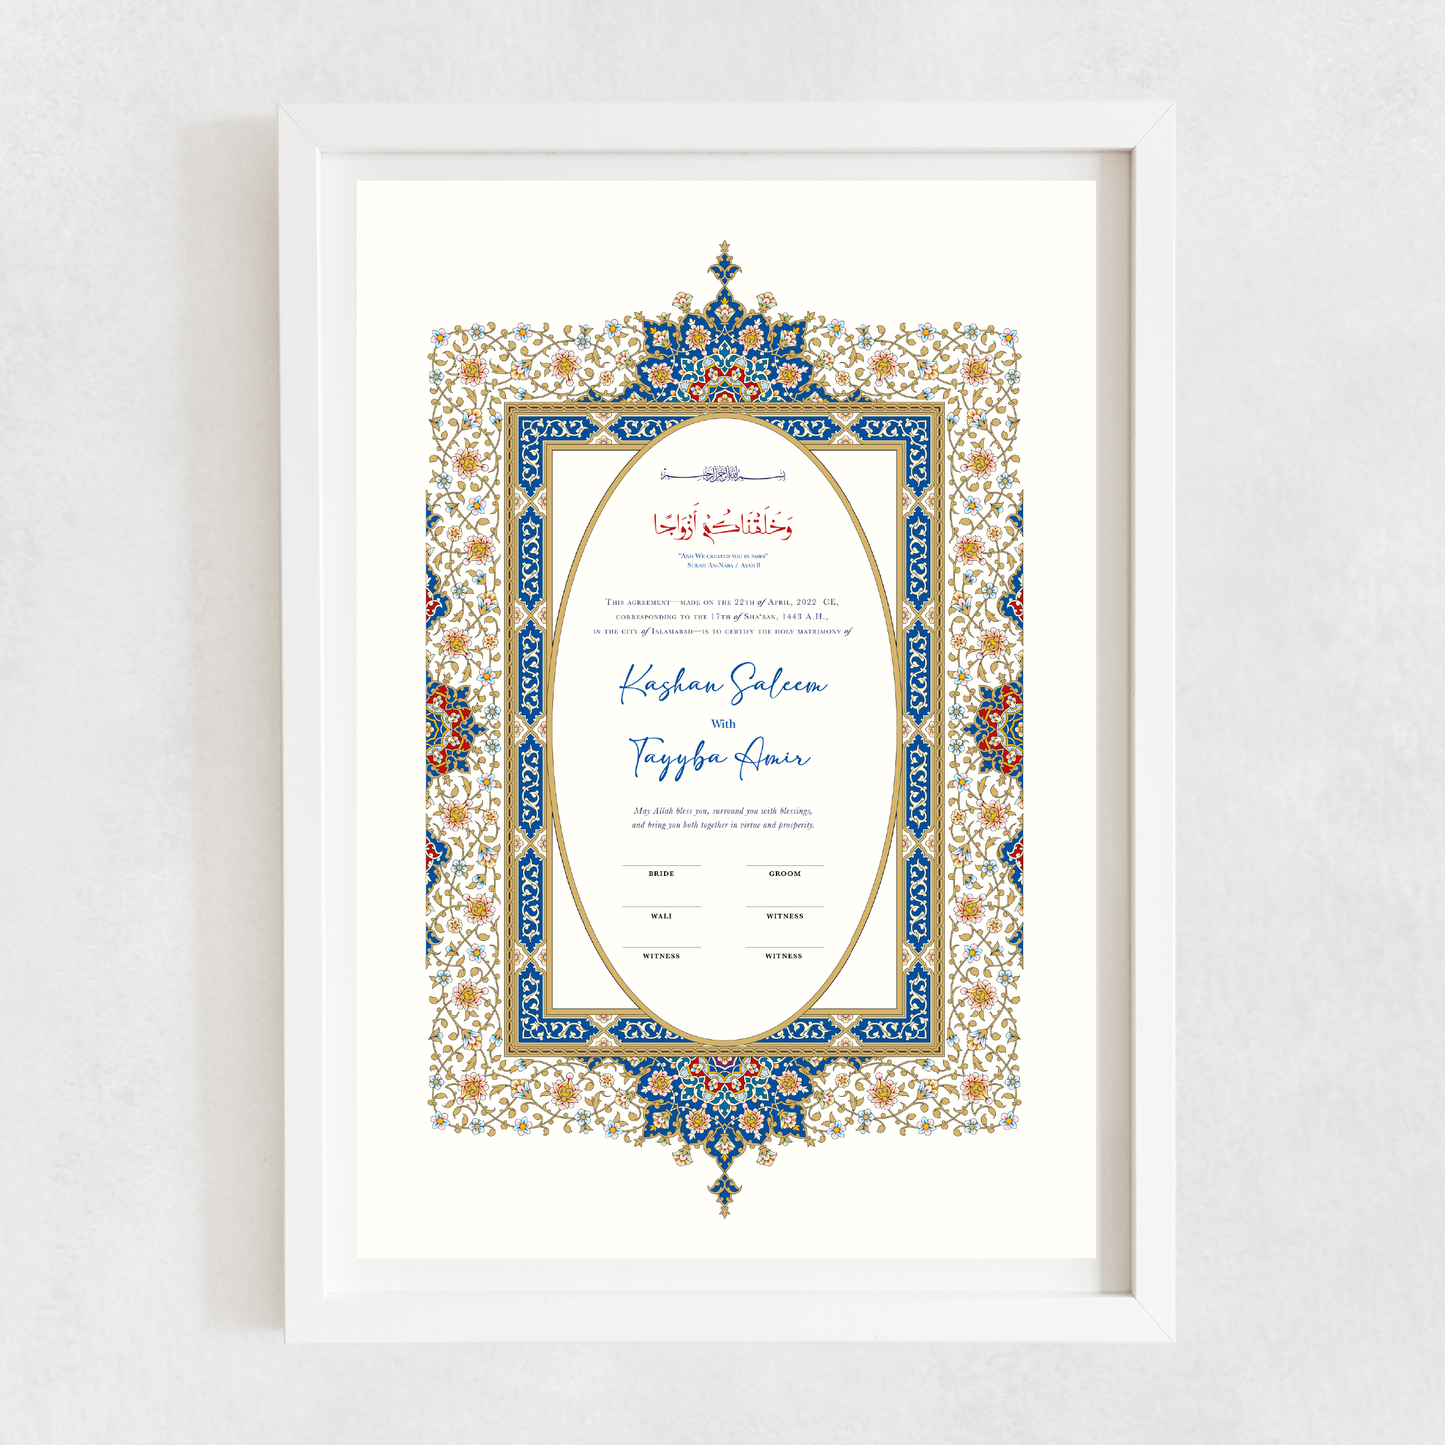 بسم الله الرحمن الرحيم
وَخَلَقْنَاكُمْ أَزْوَاجًا
"And We created you in pairs"
Surah An-Naba / Ayah 8
This agreement—made on the 22th of April, 2022 CE,
corresponding to the 17th of Sha'ban, 1443 A.H.,
in the city of Islamabad—is to certify the holy matrimony of
Kashan Saleem
With
Tayyba Amir
May Allah bless you, surround you with blessings,
and bring you both together in virtue and prosperity.
BRIDE GROOM
WALI WITNESS
WITNESS WITNESS